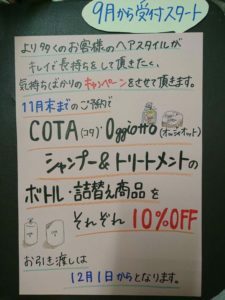 9月から受付スタート
より多くのお客様のヘアスタイルが
キレイで長持ちをして頂きたく、
気持ちばかりのキャンペーンをさせて頂きます。
11月末までのご予約で
COTA(コタ)・Oggiotto(オッジィオット)
シャンプー&トリートメントの
ボトル・詰替え商品を
それぞれ 10%OFF
お引き渡しは
12月1日からとなります。